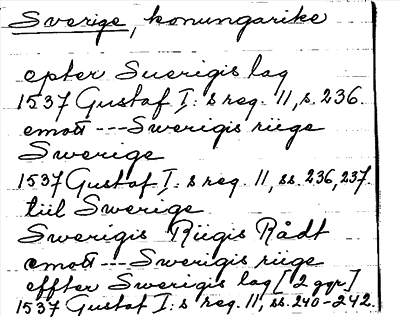 Sverige, konungarike
epter Suerigis lag
1537 Gustaf I: s reg. 11, s. 236.
emott --- Swerigis riige
Swerige
1537 Gustaf I: s reg. 11, ss. 236, 237.
tiil Swerige
Swerigis Riigis Rådt
emott --- Swerigis riige
effter Swerigis lag [2 ggr]
1537 Gustaf I: s reg. 11, ss. 240-242.